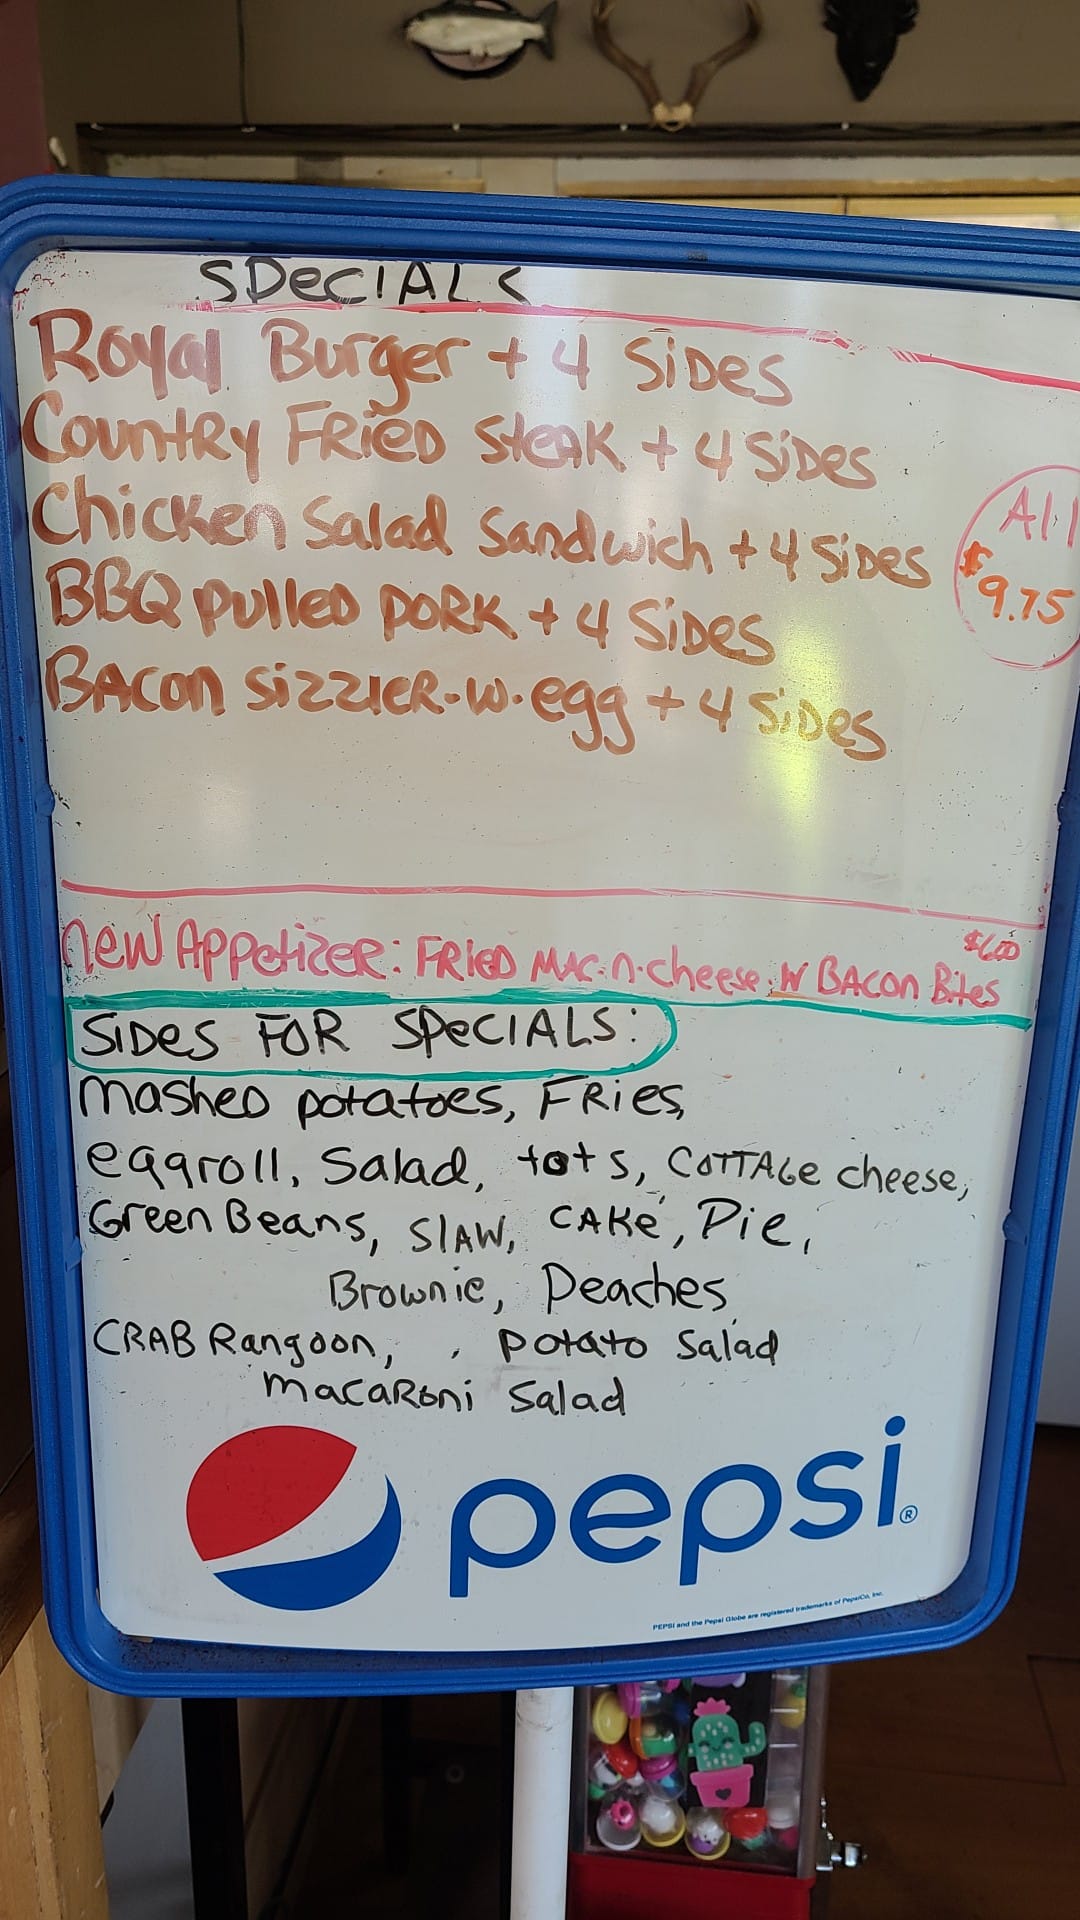 SPeCIALS
Royal Burger + 4 SiDes
CountRy FRieD SteaK + 4 SiDes
Chicken Salad Sandwich + 4 SiDes
All
$9.75
BBQ pulleD poRK + 4 SiDes
BAcon SizzleR-w-egg + 4 SiDes
new AppetizeR: FRieD MAC-n-cheese W BACon Bites
$6.00
SiDes FoR SPeCIALS:
masheD potatoes, FRies,
eggroll, Salad, tots, CoTTAGe cheese,
Green Beans, SlAW, CAKe, Pie,
Brownie, Peaches,
CRAB Rangoon, , Potato Salad
macaRoni Salad
pepsi®
PEPSI and the Pepsi Globe are registered trademarks of PepsiCo, Inc.